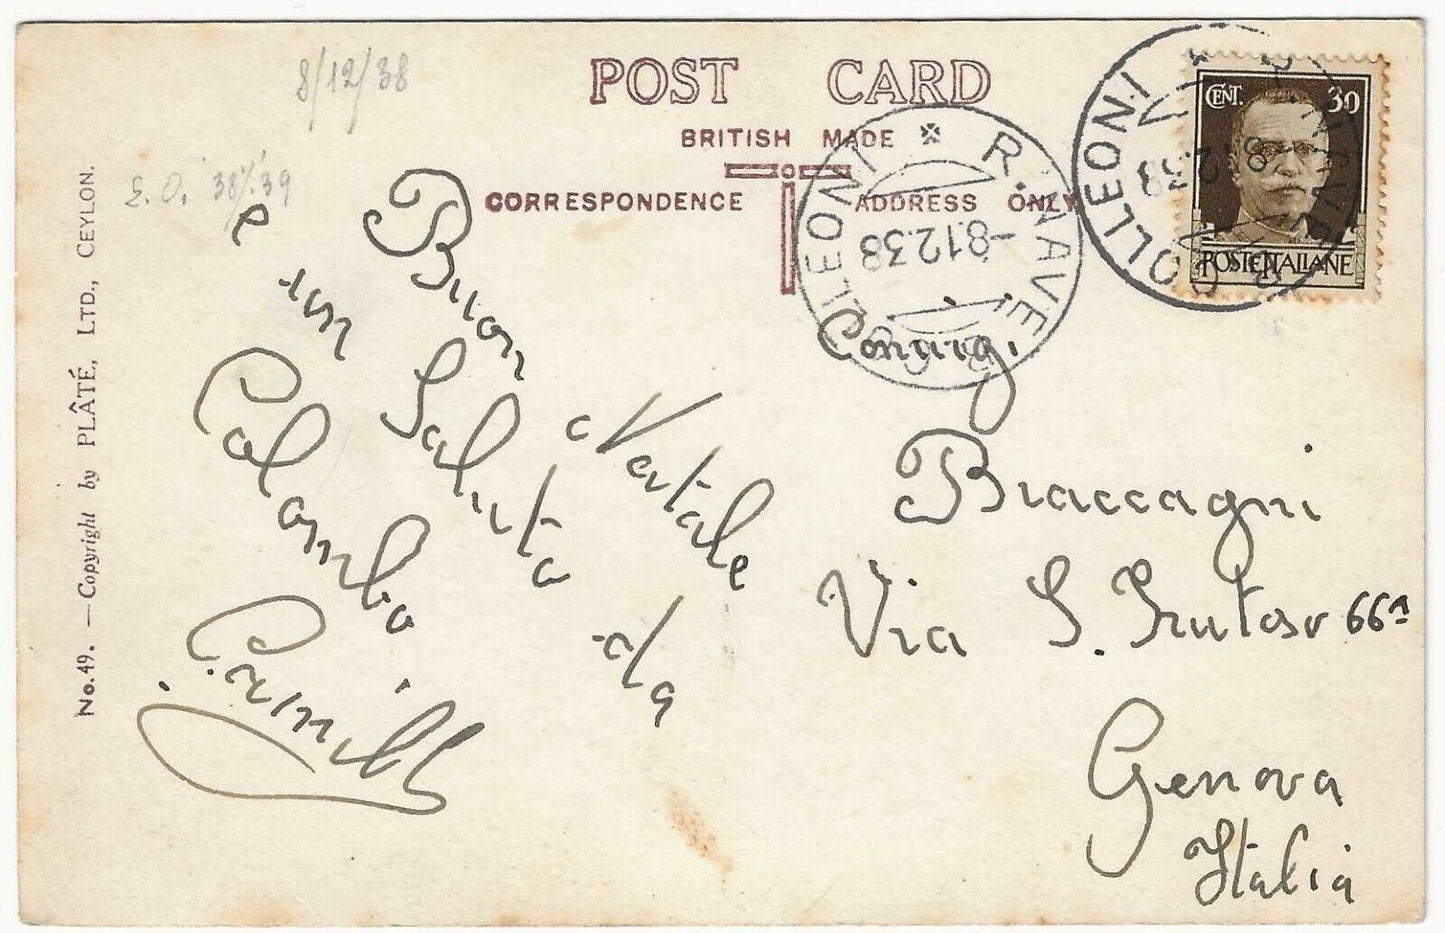 8/12/38
E.O. 38/39
POST CARD
BRITISH MADE
CORRESPONDENCE
ADDRESS ONLY
No. 49. — Copyright by PLÂTÉ, LTD., CEYLON.
Buon Natale
e un Saluto da
Colombo
Camillo
CENT. 30
POSTE ITALIANE
R. NAVE
COLLEONI
-8.12.38
R. NAVE
COLLEONI
Coniugi
Braccagni
Via S. 66A
Genova
Italia